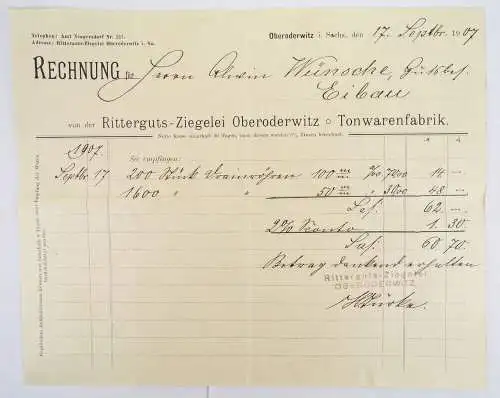 Telephon: Amt Neugersdorf Nr. 251.
Adresse: Rittergutsziegelei Oberoderwitz i. Sa.
Oberoderwitz i. Sachs, den 17. Septbr. 1907
RECHNUNG für Herrn Alwin Wünsche, Gutsbes.
Eibau
von der Ritterguts-Ziegelei Oberoderwitz Tonwarenfabrik.
Netto Kasse innerhalb 30 Tagen, nach diesen werden Zinsen berechnet.
1907.
Sie empfingen:
Septbr. 17 200 Stück Drainröhren 100 m/m % 7.00 14 —
1600 " " 50 m/m " 30.00 48 —
Sa: 62 —
2% Sconto 1. 30
Sa: 60 70
Betrag dankend erhalten
Ritterguts-Ziegelei
OBERODERWITZ